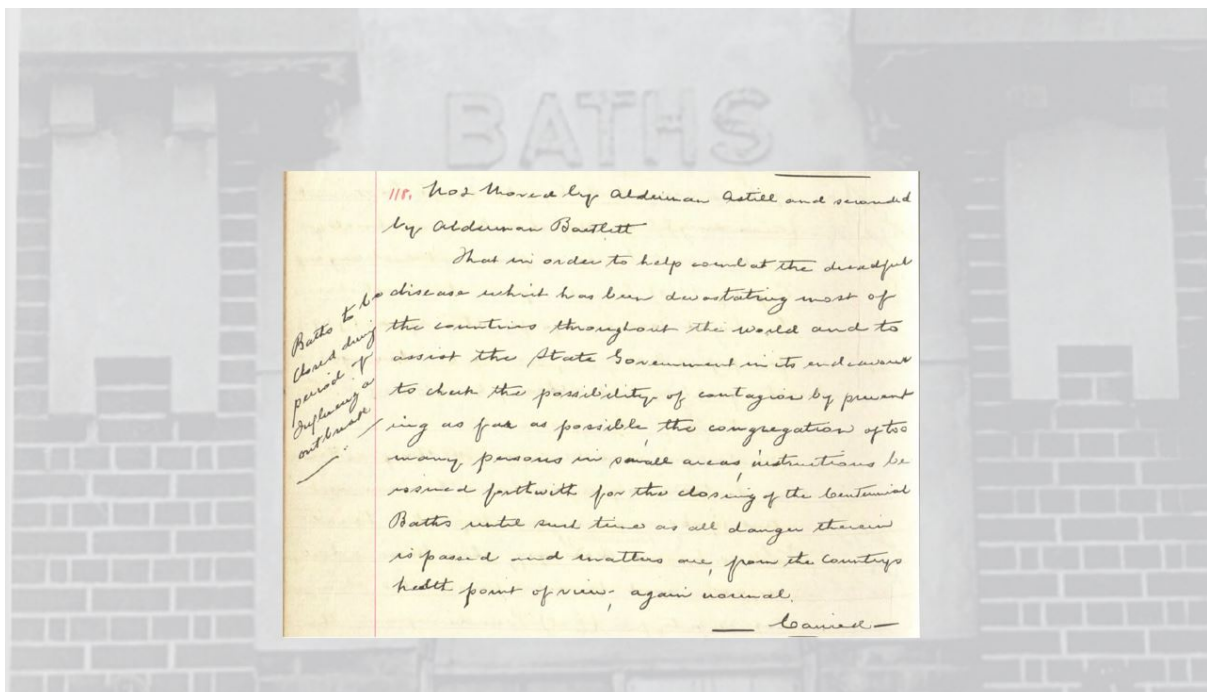 BATHS
118. Was Moved by Alderman Astill and seconded
by Alderman Bartlett
That in order to help combat the dreadful
disease which has been devastating most of
the countries throughout the world and to
assist the State Government in its endeavour
to check the possibility of contagion by prevent
ing as far as possible, the congregation of too
many persons in small areas, instructions be
issued forthwith for the closing of the Centennial
Baths until such time as all danger therein
is passed and matters are, from the Countrys
health point of view, again normal.
Carried
Baths to be
closed during
period of
Influenza
outbreak